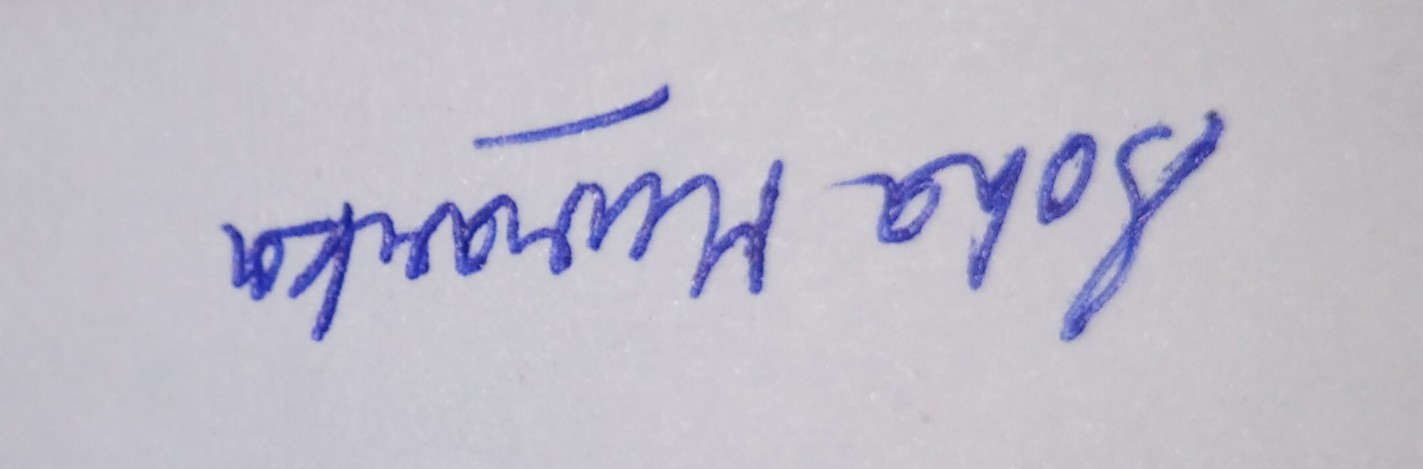 Soha Murarka